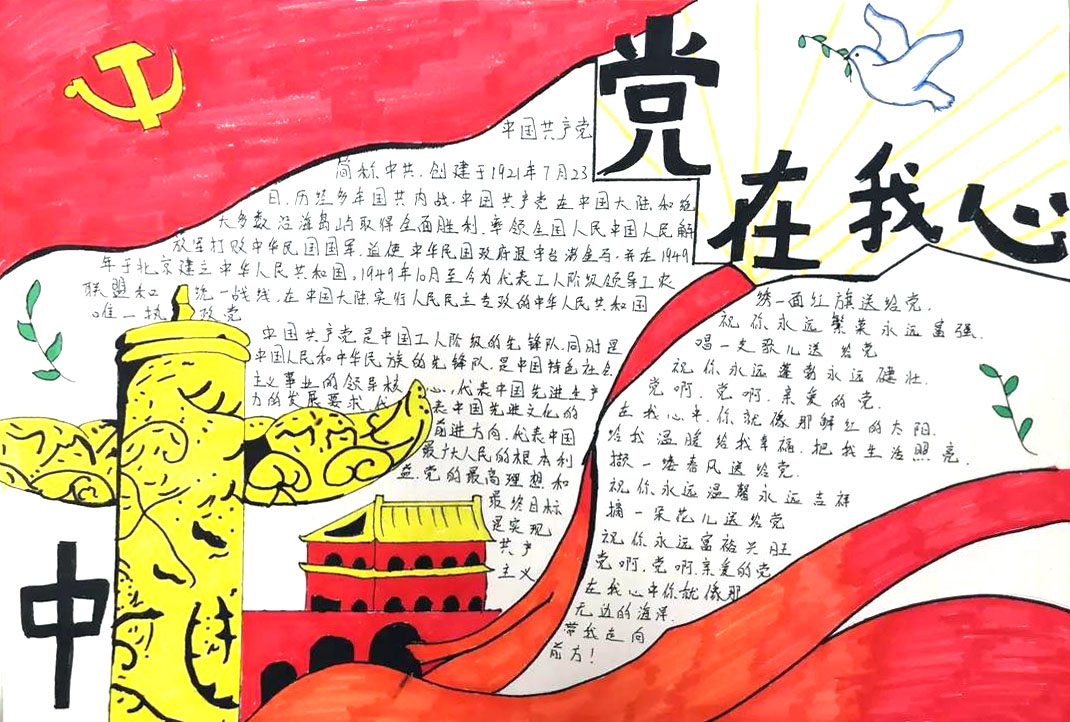 党在我心中
中国共产党
简称中共，创建于1921年7月23
日，历经多年国共内战，中国共产党在中国大陆和绝
大多数沿海岛屿取得全面胜利，率领全国人民中国人民解
放军打败中华民国国军，并使中华民国政府退守台湾金马，并在1949
年于北京建立中华人民共和国，1949年10月至今为代表工人阶级领导工农
联盟和统一战线，在中国大陆实行人民民主专政的中华人民共和国
唯一执政党
中国共产党是中国工人阶级的先锋队，同时是
中国人民和中华民族的先锋队，是中国特色社会
主义事业的领导核心，代表中国先进生产
力的发展要求，代表中国先进文化的
前进方向，代表中国
最广大人民的根本利
益，党的最高理想和
最终目标
是实现
共产
主义
绣一面红旗送给党，
祝你永远繁荣永远富强，
唱一支歌儿送给党
祝你永远蓬勃永远健壮，
党啊，党啊，亲爱的党，
在我心中，你就像那鲜红的太阳，
给我温暖给我幸福，把我生活照亮，
撷一缕春风送给党，
祝你永远温馨永远吉祥
摘一朵花儿送给党
祝你永远富裕兴旺
党啊，党啊，亲爱的党，
在我心中你就像那
无边的海洋，
带我走向
前方！